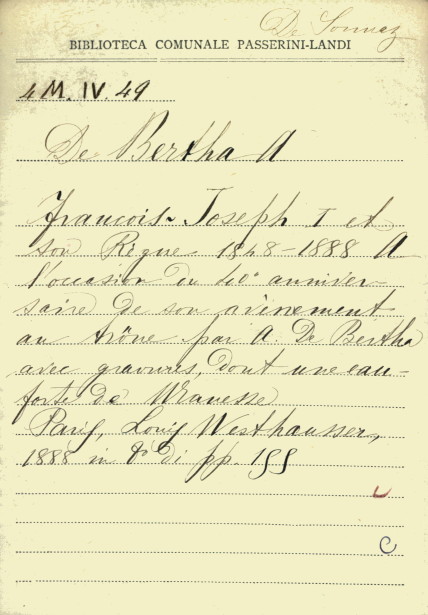 De Sonnaz
BIBLIOTECA COMUNALE PASSERINI-LANDI
4 M. IV. 49
De Bertha A
Francois-Joseph I et
son Règne 1848-1888 A
l'occasion du 40° anniver-
saire de son avènement
au trône par A. De Bertha
avec gravures, dont une eau-
forte de Wranesse
Paris, Louis Westhausser,
1888 in 8° di pp. 155
C